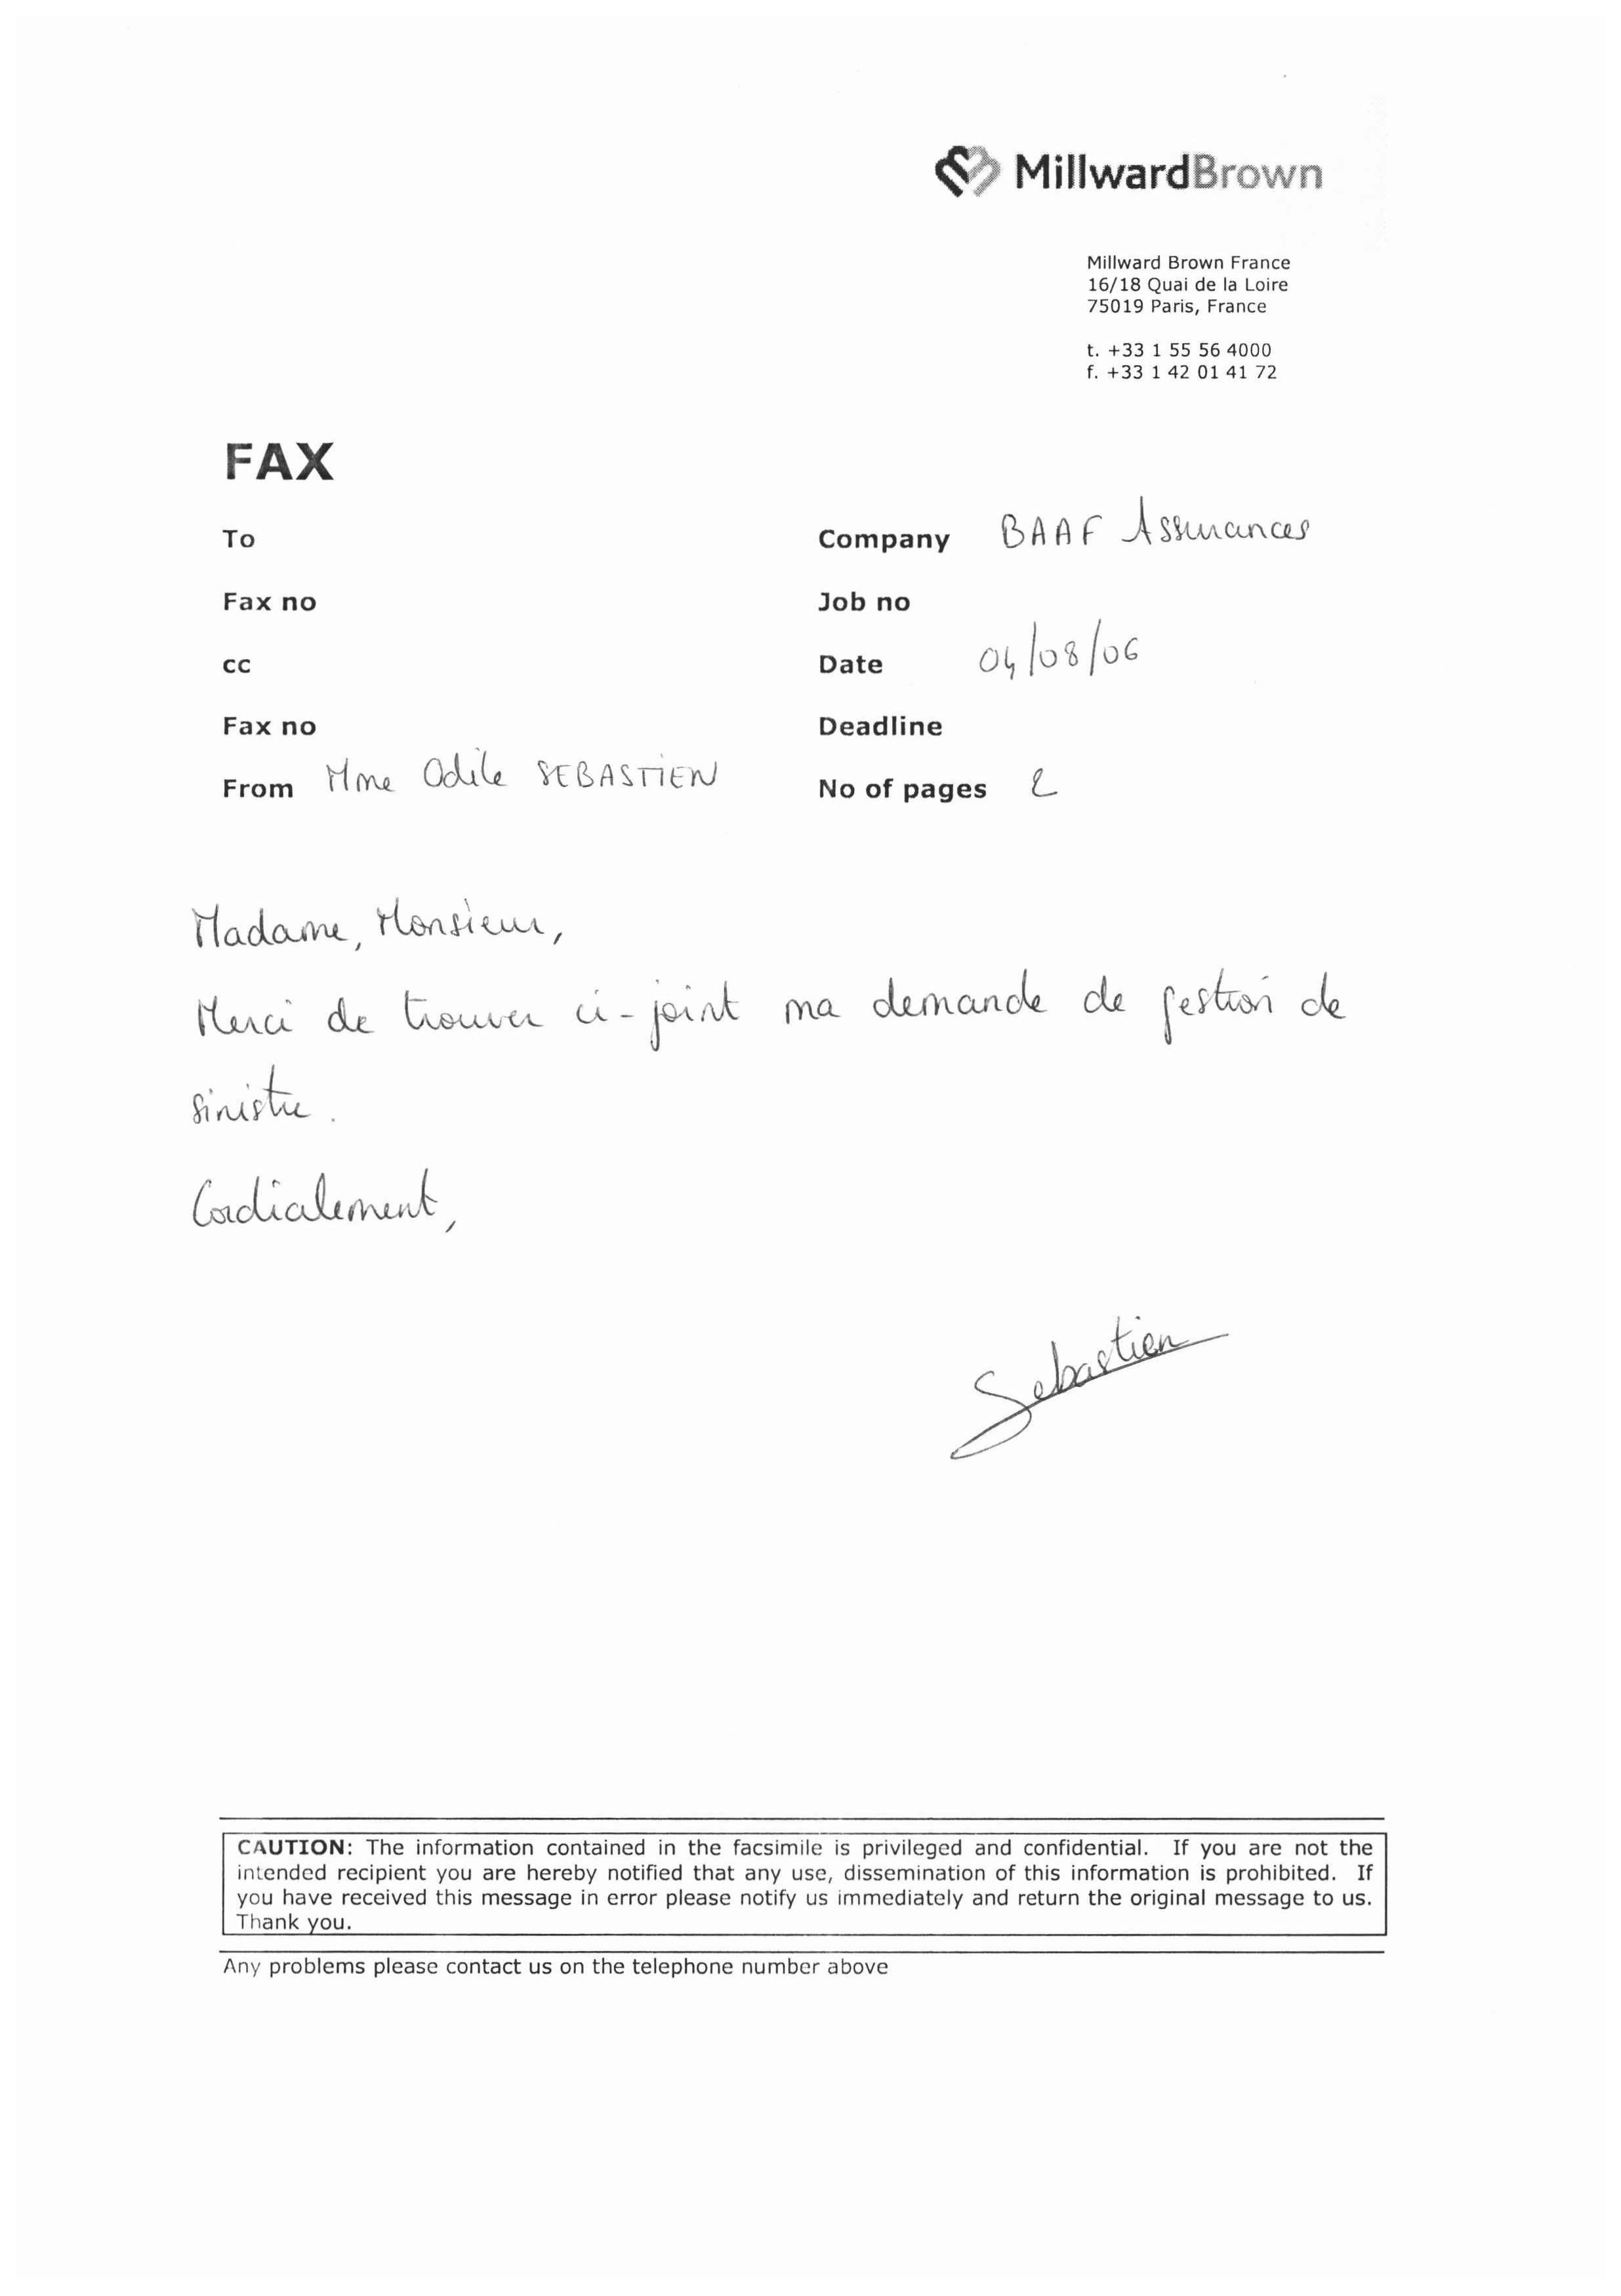 MillwardBrown
Millward Brown France
16/18 Quai de la Loire
75019 Paris, France
t. +33 1 55 56 4000
f. +33 1 42 01 41 72
FAX
To
Company BAAF Assurances
Fax no
Job no
cc
Date 04/08/06
Fax no
Deadline
From Mme Odile SEBASTIEN
No of pages 2
Madame, Monsieur,
Merci de trouver ci-joint ma demande de gestion de
sinistre.
Cordialement,
Sebastien
CAUTION: The information contained in the facsimile is privileged and confidential. If you are not the
intended recipient you are hereby notified that any use, dissemination of this information is prohibited. If
you have received this message in error please notify us immediately and return the original message to us.
Thank you.
Any problems please contact us on the telephone number above